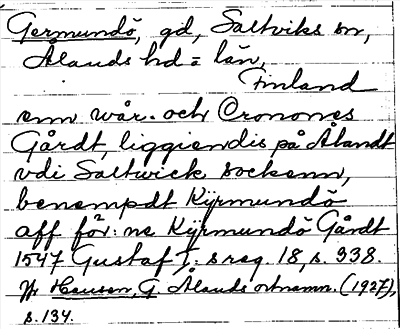 Germundö, gd, Saltviks sn,
Ålands hd = län,
Finland
enn wår. och Cronones
Gårdt, liggiendis på Ålandt
vdi Saltwick sockenn,
benempdt Kÿrmundö
aff för: ne Kÿrmundö Gårdt
1547 Gustaf I: s reg. 18, s. 338.
Jfr Hausen, G Ålands ortnamn. (1927),
s. 134.